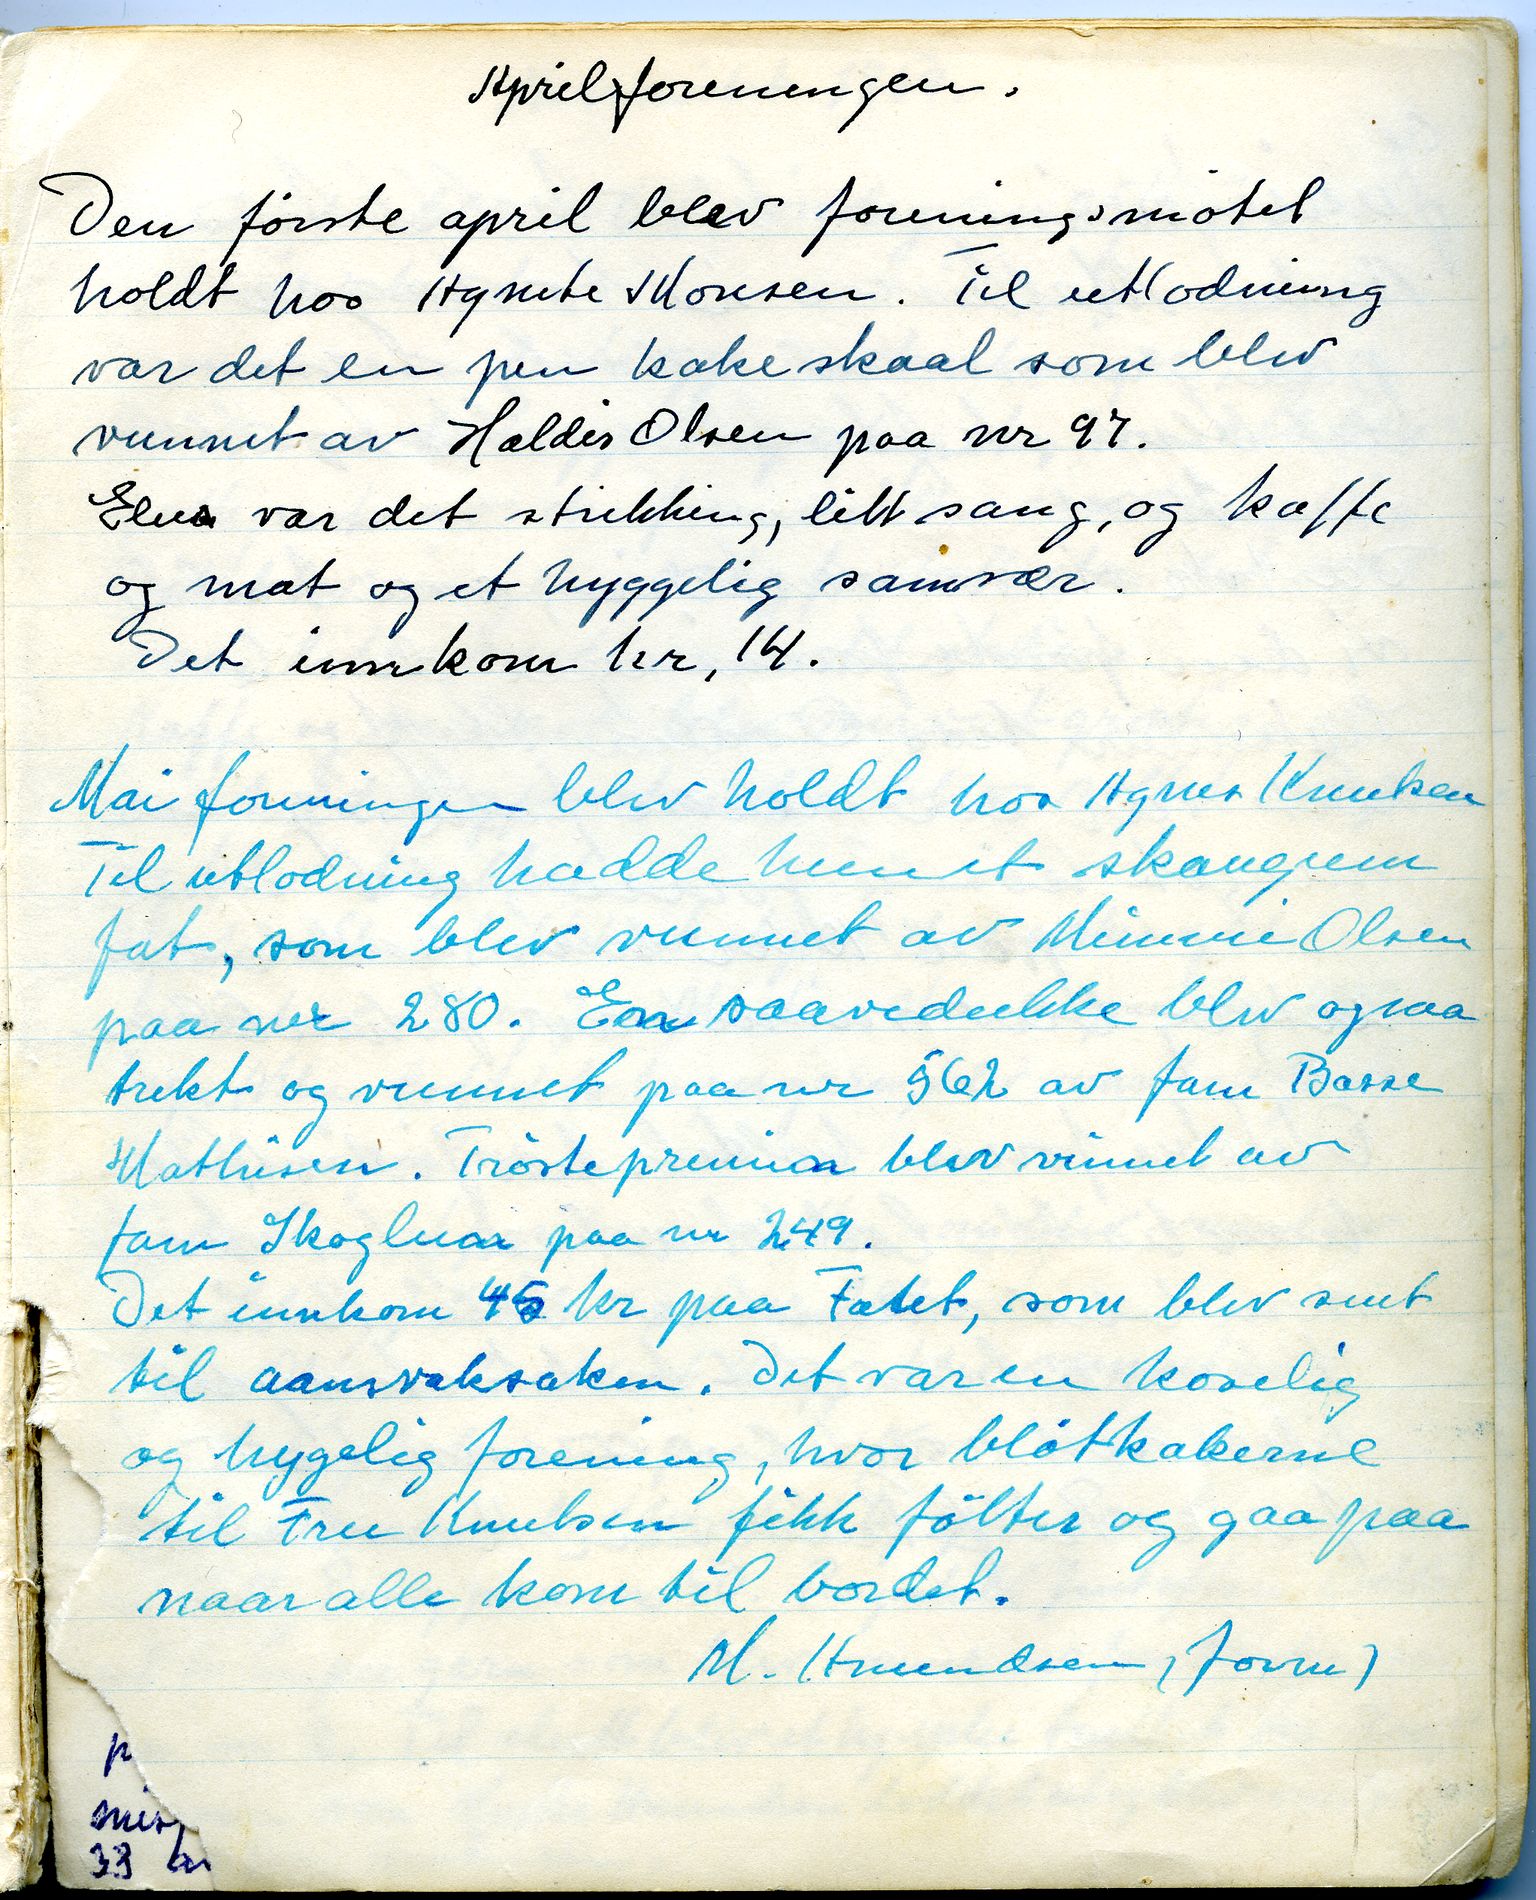 Aprilforeningen.
Den første april blev foreningsmötet
holdt hos Agnete Monsen. Til utlodning
var det en pen kakeskaal som blev
vunnet av Haldis Olsen paa nr 97.
Elles var det strikking, litt sang, og kaffe
og mat og et hyggelig samvær.
Det innkom kr, 14.
Mai foreningen blev holdt hos Agnes Knutsen
Til utlodning hadde hun et skaugum
fat, som blev vunnet av Mimmi Olsen
paa nr 280. En saavedukke blev ogsaa
trekt og vunnet paa nr 562 av fam Basse
Mathisen. Tröstepremien blev vunnet av
fam Skoglun paa nr 249.
Det innkom 45 kr paa Fatet, som blev sent
til aansvaksaken. Det var en koselig
og hygelig forening, hvor blötkakerne
til Fru Knutsen fikk fölter og gaa paa
naar alle kom til bordet.
M. Amundsen, (form)
p
mis
33